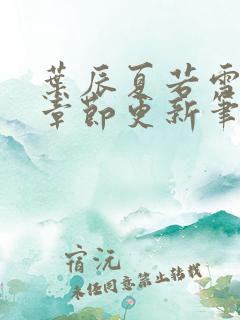 葉辰夏若雪
章節更新筆
宿沅
未经同意禁止转载